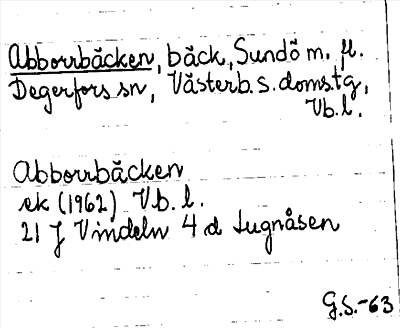 Abborrbäcken, bäck, Sundö m. fl.
Degerfors sn, Västerb. s. domstg,
Vb. l.
Abborrbäcken
ek (1962) Vb. l.
21 J Vindeln 4 d Lugnåsen
G.S.-63